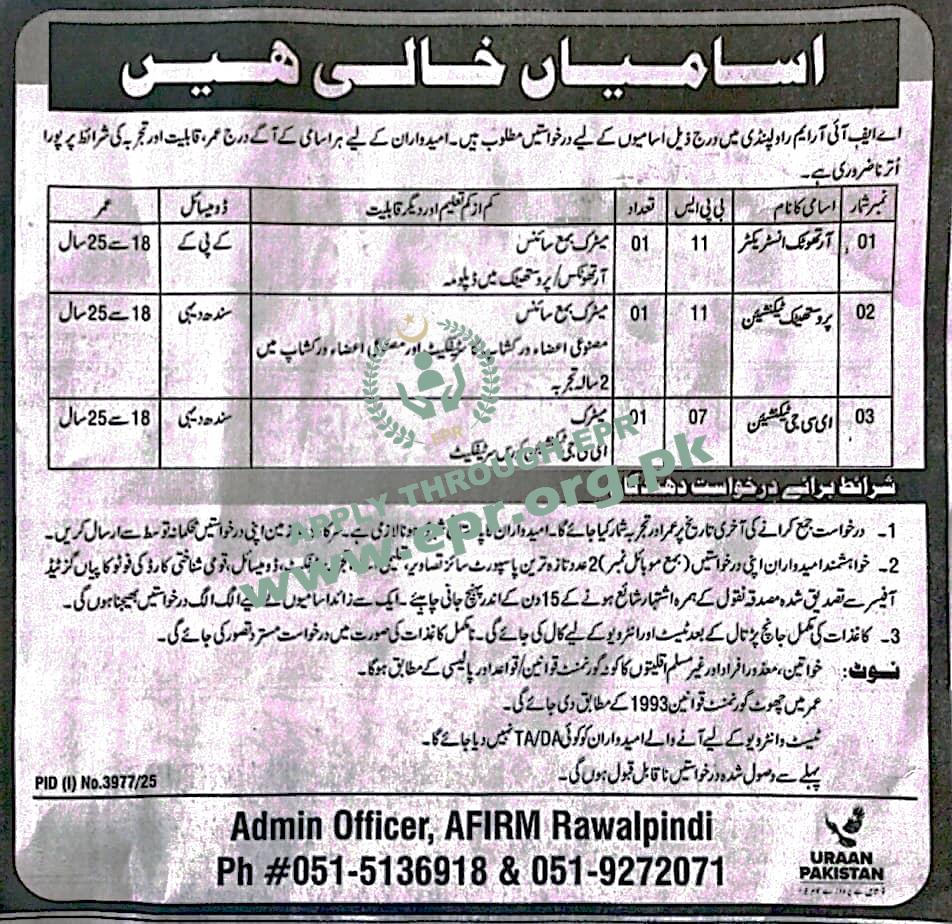 اسامیاں خالی ہیں
اے ایف آئی آر ایم راولپنڈی میں درج ذیل اسامیوں کے لیے درخواستیں مطلوب ہیں۔ امیدواران کے لیے ہر اسامی کے آگے درج عمر، قابلیت اور تجربہ کی شرائط پر پورا
اُترنا ضروری ہے۔
نمبر شمار اسامی کا نام بی پی ایس تعداد کم از کم تعلیم اور دیگر قابلیت ڈومیسائل عمر
01 آرتھوٹک انسٹرکٹر 11 01 میٹرک بمع سائنس کے پی کے 18 سے 25 سال
آرتھوٹکس/پروستھیٹک میں ڈپلومہ
02 پروستھیٹک ٹیکنیشین 11 01 میٹرک بمع سائنس سندھ دیہی 18 سے 25 سال
مصنوعی اعضاء ورکشاپ سرٹیفکیٹ اور مصنوعی اعضاء ورکشاپ میں
2 سالہ تجربہ
03 ای سی جی ٹیکنیشین 07 01 میٹرک سندھ دیہی 18 سے 25 سال
ای سی جی ٹیکنیشین کورس سرٹیفکیٹ
EPR
APPLY THROUGH EPR
www.epr.org.pk
شرائط برائے درخواست دھندگان
1۔ درخواست جمع کرانے کی آخری تاریخ پر عمر اور تجربہ شمار کیا جائے گا۔ امیدواران کا پاکستانی ہونا لازمی ہے۔ سرکاری ملازمین اپنی درخواستیں محکمانہ توسط سے ارسال کریں۔
2۔ خواہشمند امیدواران اپنی درخواستیں (بمع موبائل نمبر) 2 عدد تازہ ترین پاسپورٹ سائز تصاویر، تعلیمی ڈومیسائل، قومی شناختی کارڈ کی فوٹو کاپیاں گزٹیڈ
آفیسر سے تصدیق شدہ مصدقہ نقول کے ہمراہ اشتہار شائع ہونے کے 15 دن کے اندر پہنچ جانی چاہیے۔ ایک سے زائد اسامیوں کے لیے الگ الگ درخواستیں بھیجنا ہوں گی۔
3۔ کاغذات کی مکمل جانچ پڑتال کے بعد ٹیسٹ اور انٹرویو کے لیے کال کی جائے گی۔ نامکمل کاغذات کی صورت میں درخواست مسترد تصور کی جائے گی۔
نوٹ: خواتین، معذور افراد اور غیر مسلم اقلیتوں کا کوٹہ گورنمنٹ قوانین/قواعد اور پالیسی کے مطابق ہوگا۔
عمر میں چھوٹ گورنمنٹ قوانین 1993 کے مطابق دی جائے گی۔
ٹیسٹ و انٹرویو کے لیے آنے والے امیدواران کو کوئی TA/DA نہیں دیا جائے گا۔
پہلے سے وصول شدہ درخواستیں ناقابل قبول ہوں گی۔
PID (I) No.3977/25
Admin Officer, AFIRM Rawalpindi
Ph #051-5136918 & 051-9272071
URAAN
PAKISTAN